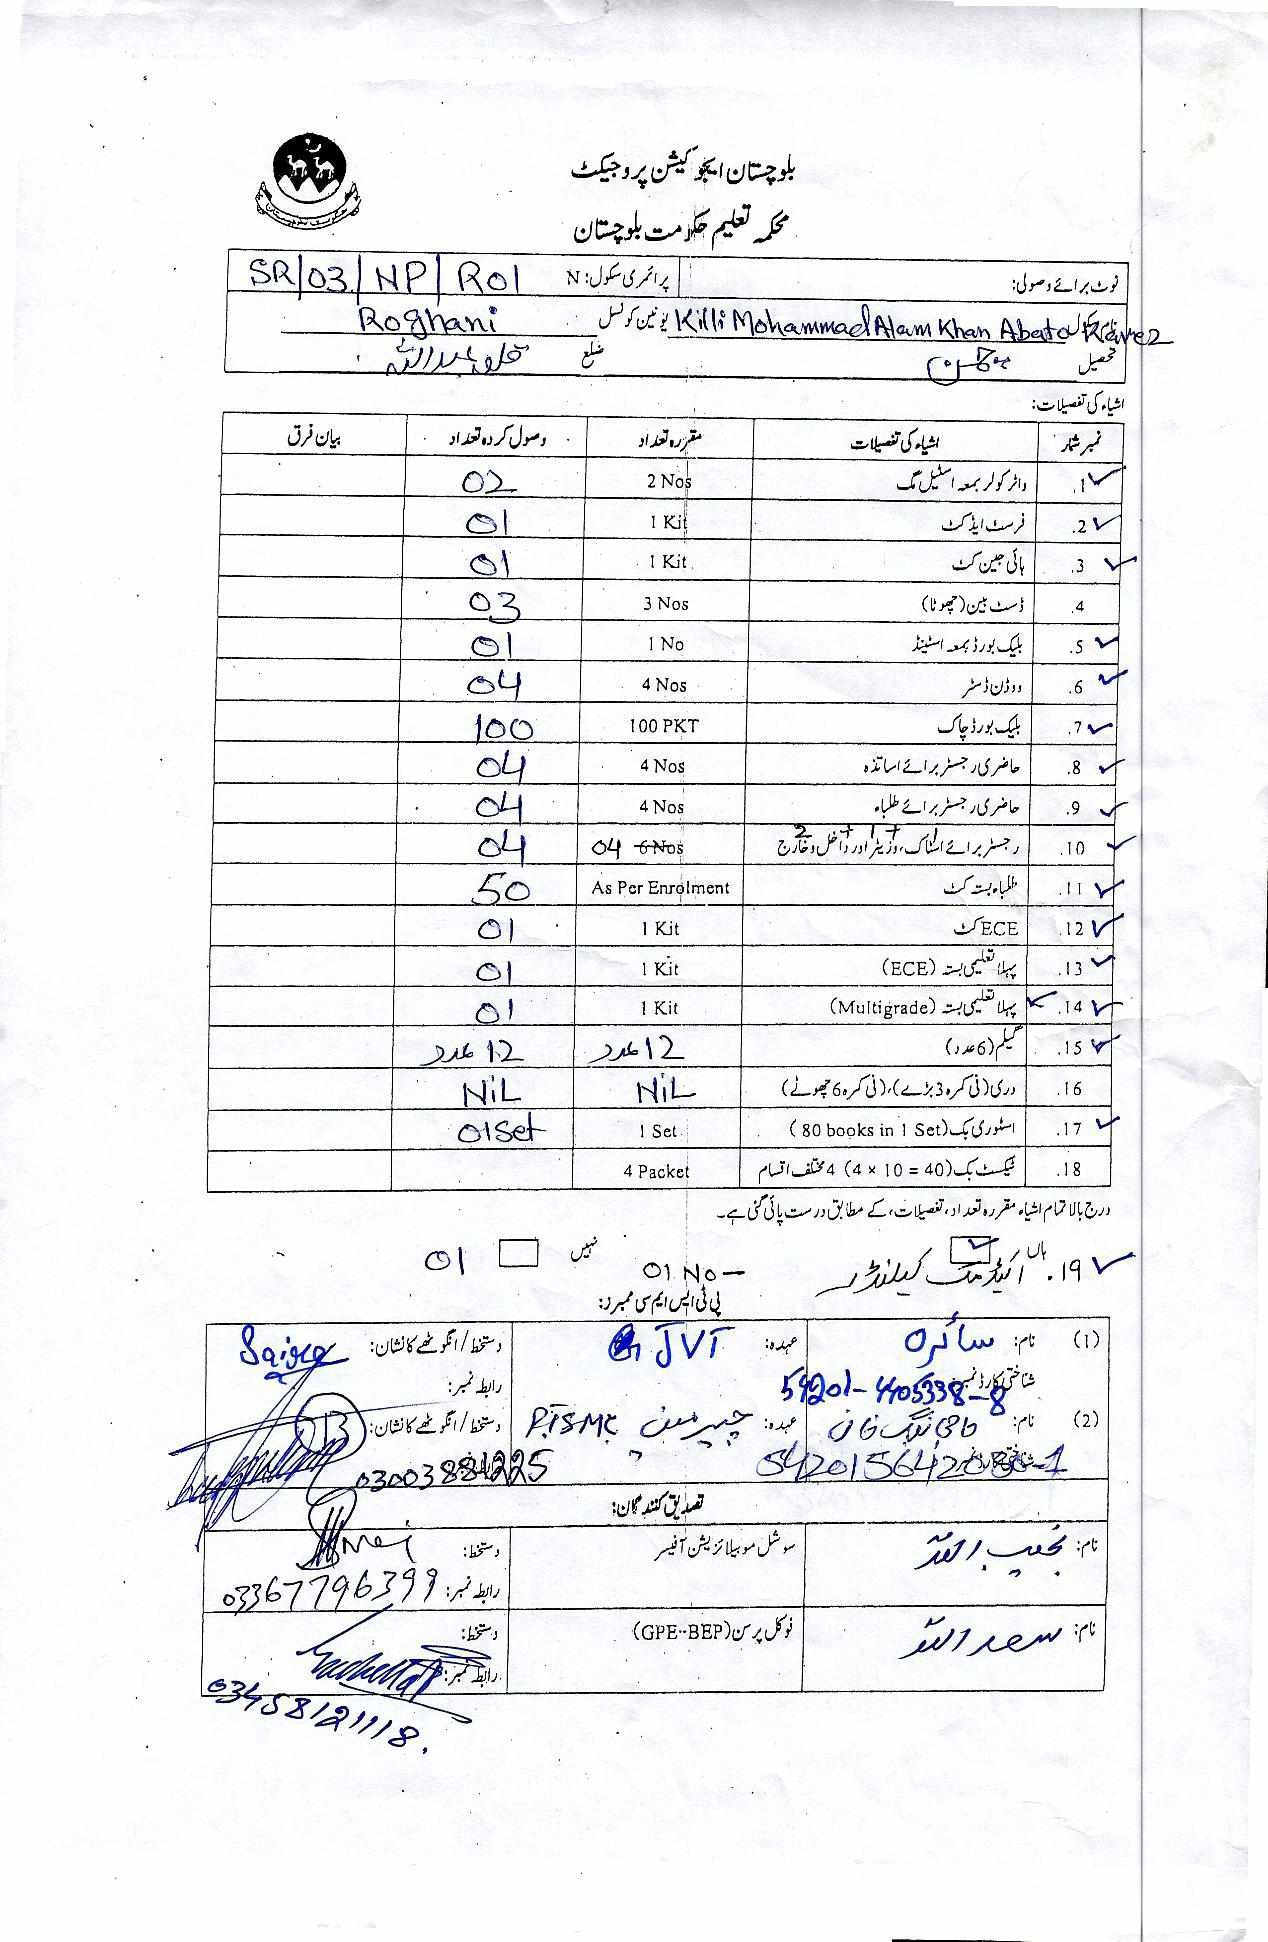 بلوچستان ایجوکیشن پروجیکٹ
محکمہ تعلیم حکومت بلوچستان
نوٹ برائے وصولی: پرائمری سکول: N SR/03/NP/R01
Killi Mohammad Alam Khan Abato Karez یونین کونسل Roghani
تحصیل چمن ضلع قلعہ عبداللہ
اشیاء کی تفصیلات:
نمبر شمار اشیاء کی تفصیلات مقررہ تعداد وصول کردہ تعداد بیان فرق
1. واٹر کولر بمعہ اسٹیل مگ 2 Nos 02
2. فرسٹ ایڈ کٹ 1 Kit 01
3. ہائی جین کٹ 1 Kit 01
4. ڈسٹ بین (چھوٹا) 3 Nos 03
5. بلیک بورڈ بمعہ اسٹینڈ 1 No 01
6. ووڈن ڈسٹر 4 Nos 04
7. بلیک بورڈ چاک 100 PKT 100
8. حاضری رجسٹر برائے اساتذہ 4 Nos 04
9. حاضری رجسٹر برائے طلباء 4 Nos 04
2 + 1 + 1
10. رجسٹر برائے اسٹاک، وزیٹر اور داخل و خارج 6 Nos 04 04
11. طلباء بستہ کٹ As Per Enrolment 50
12. ECE کٹ 1 Kit 01
13. پہلا تعلیمی بستہ (ECE) 1 Kit 01
14. پہلا تعلیمی بستہ (Multigrade) 1 Kit 01
15. گلیم (6 عدد) 12 عدد 12 عدد
16. دری (فی کمرہ 3 بڑے)، (فی کمرہ 6 چھوٹے) NiL NiL
17. اسٹوری بک (80 books in 1 Set) 1 Set 01 Set
18. ٹیکسٹ بک (4 × 10 = 40) 4 مختلف اقسام 4 Packet
درج بالا تمام اشیاء مقررہ تعداد، تفصیلات، کے مطابق درست پائی گئی ہے۔
ہاں نہیں
19. اکیڈمک کیلنڈر 01 No - 01
پی ٹی ایس ایم سی ممبرز:
(1) نام: سائرہ عہدہ: JVT دستخط/انگوٹھے کا نشان: Saira
شناختی کارڈ نمبر 54201-4405338-8 رابطہ نمبر:
(2) نام: عہدہ: چیرمین PTSMC دستخط/انگوٹھے کا نشان:
03003881225
تصدیق کنندگان:
نام: نجیب اللہ سوشل موبیلائزیشن آفیسر دستخط:
رابطہ نمبر: 03367796399
نام: سعد اللہ فوکل پرسن (GPE-BEP) دستخط:
رابطہ نمبر:
03458121118.